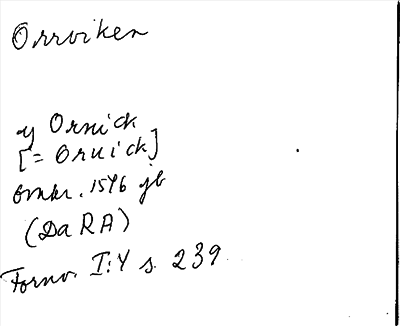 Orrviken
y Ornick
[= Oruick]
omkr. 1546 jb
(Da RA)
Fornv. I:4 s. 239